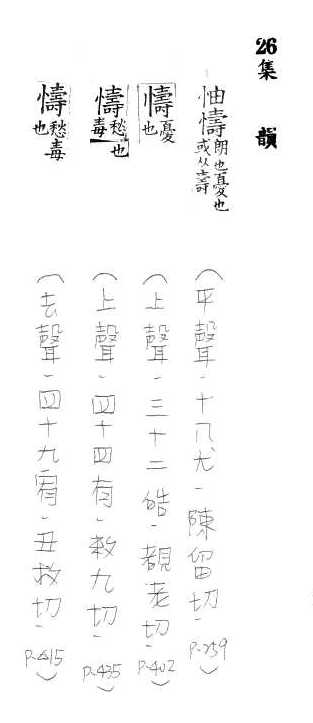 26集 韻
怞懤朗也憂也或从壽(平聲、十八尤、陳留切、P.259)
懤憂也(上聲、三十二皓、覩老切、P.402)
懤愁也毒(上聲、四十四有、敕九切、P.435)
懤愁毒也(去聲、四十九宥、丑救切、)